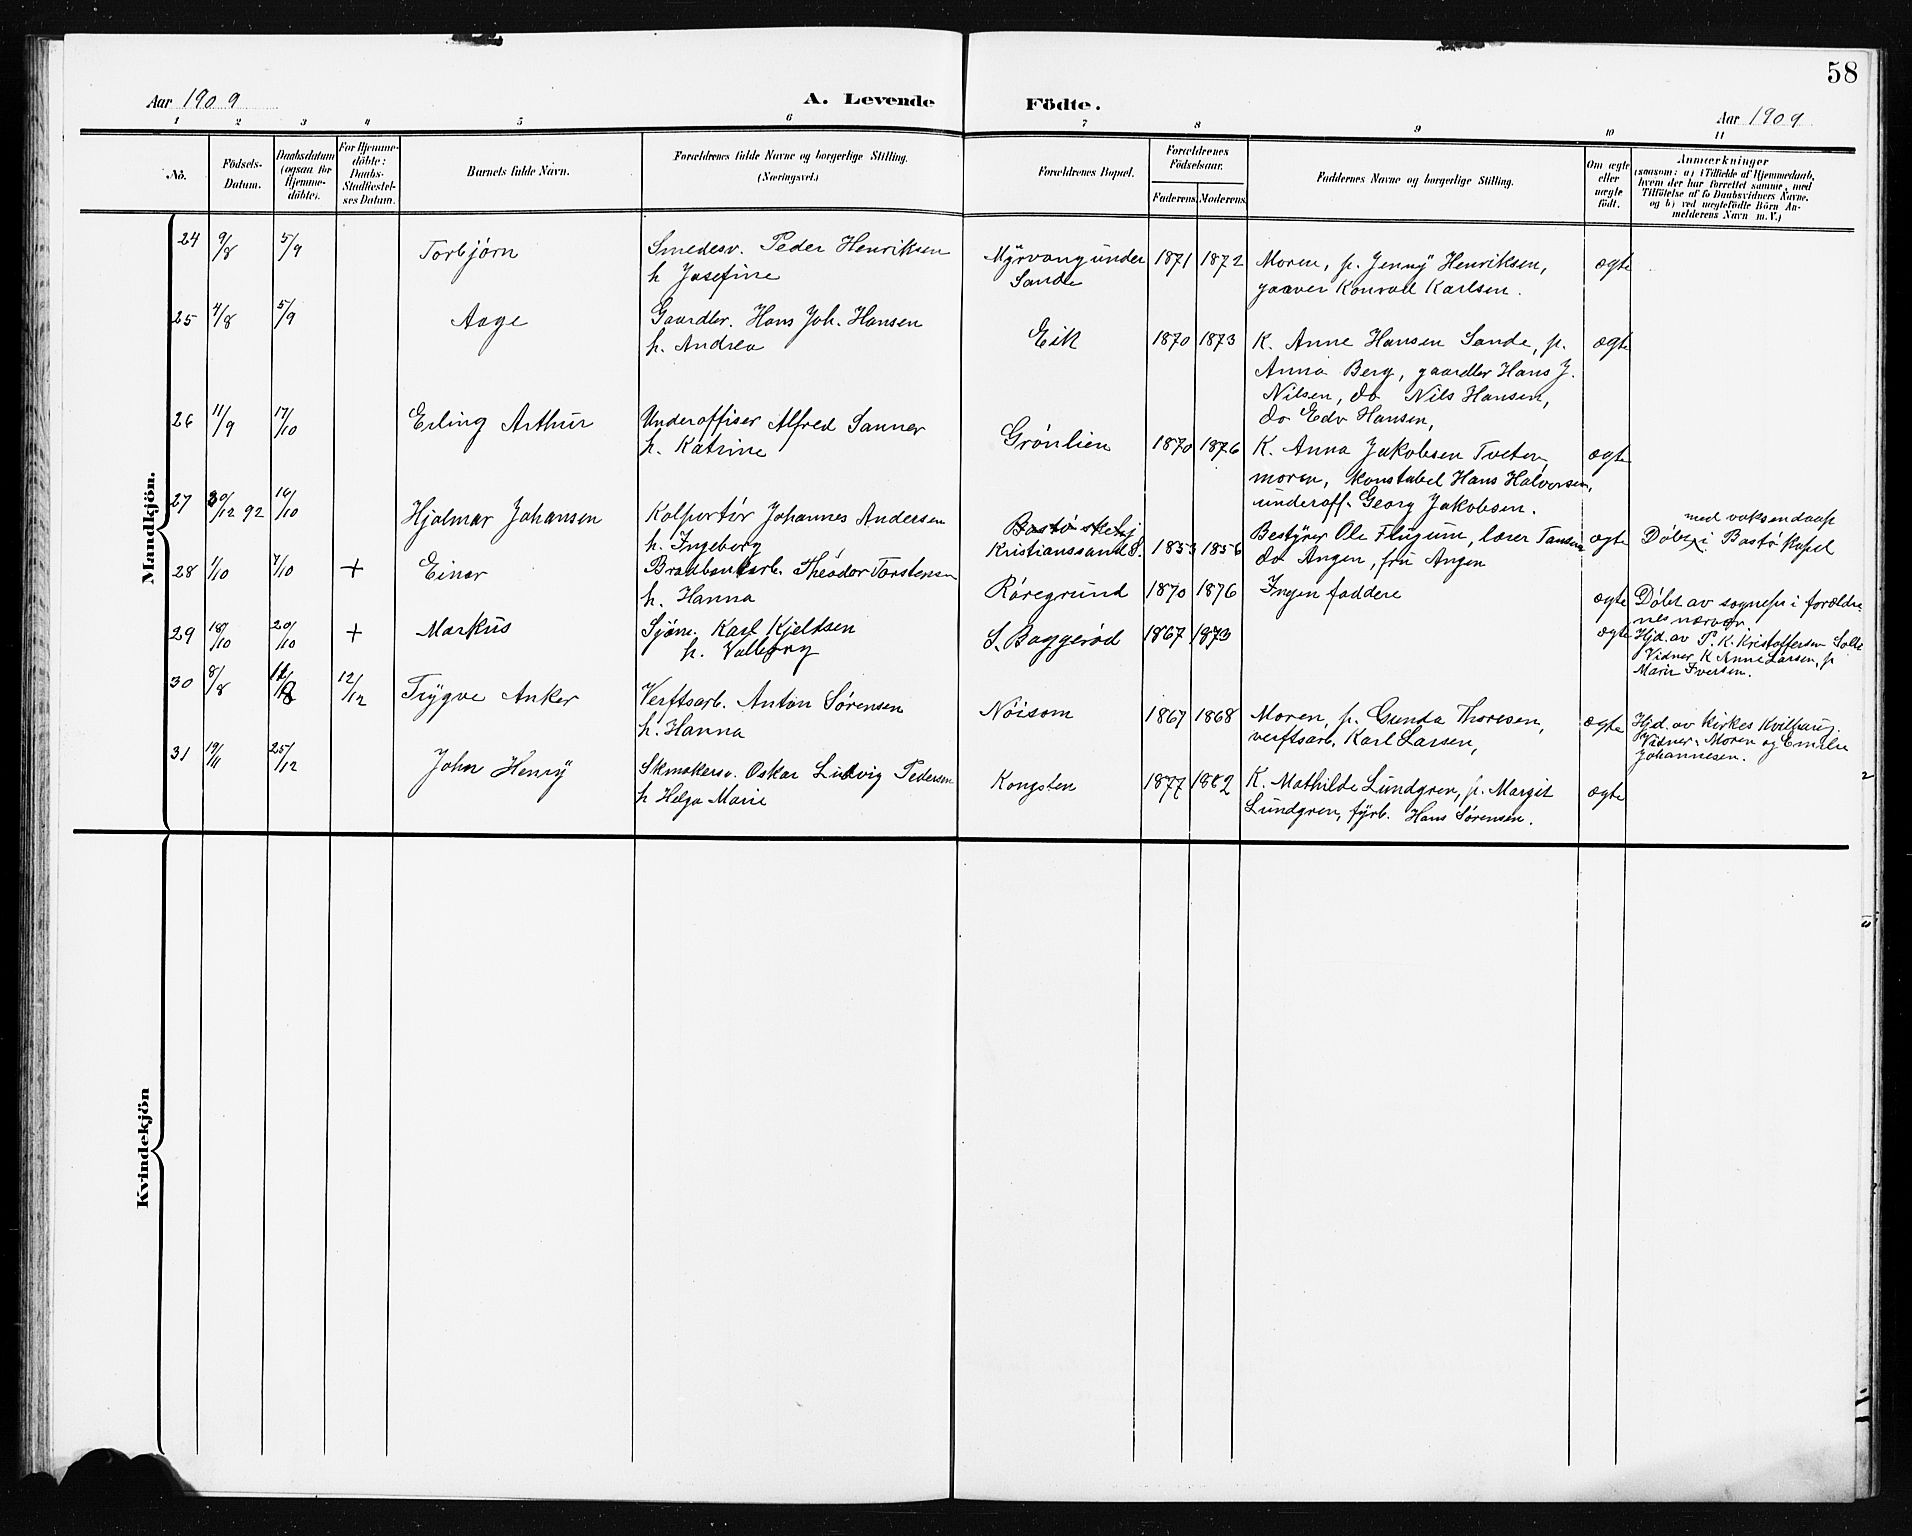 58
Aar 1909
A. Levende Födte.
Aar 1909
1 2 3 4 5 6 7 8 9 10 11
No.
Födsels-
Datum.
Daabsdatum
(ogsaa for
Hjemme-
döbte).
For Hjemme-
döbte:
Daabs-
Stadfæstel-
ses Datum.
Barnets fulde Navn.
Forældrenes fulde Navne og borgerlige Stilling.
(Næringsvei.)
Forældrenes Bopæl.
Forældrenes
Födselsaar.
Faderens. Moderens.
Faddernes Navne og borgerlige Stilling.
Om ægte
eller
uægte
födt.
Anmærkninger
(saasom: a) i Tilfælde af Hjemmedaab,
hvem der har forrettet samme, med
Tilföielse af to Daabsvidners Navne,
og b) ved uægtefödte Börn An-
melderens Navn m. V.)
Mandkjön.
24 9/8 5/9 Torbjørn Smedesv. Peder Henriksen
h. Josefine
Myrvang under
Sande
1871 1872 Moren, p. Jenny Henriksen,
gaaver Konrad Karlsen.
ægte
25 4/8 5/9 Aage Gaardbr. Hans Joh. Hansen
h. Andrea
Eik 1870 1873 K. Anne Hansen Sande, p.
Anna Berg, gaardbr Hans J.
Nilsen, do Nils Hansen,
do Edv Hansen,
ægte
26 11/9 17/10 Erling Arthur Underoffiser Alfred Sanner
h. Katrine
Grönlien 1870 1876 K. Anna Jakobsen Tveten,
moren, konstabel Hans Halvorsen,
underoff. Georg Jakobsen.
ægte
27 30/12 92 16/10 Hjalmar Johansen Kolportör Johannes Andersen
h. Ingeborg
Bastö
Kristianssand S. 1853 1856 Bestyrer Ole Flugum, lærer Tansem
do Angen, fru Angen
ægte
med voksendaap
Döbt i Bastö kapel
28 1/10 7/10 + Einar Theodor Torstensen
h. Hanna
Röregrund 1870 1876 Ingen faddere
ægte Döbt av sognepr i forældre
nes nærvær.
29 18/10 20/10 + Markus Sjöm. Karl Kjeldsen
h. Valborg
S. Baggeröd 1867 1873
ægte Hjd. av P. K. Kristoffersen
Vidner K Anne Larsen, p
Marie Iversen.
30 8/8 12/12 Trygve Anker Verftsarb. Anton Sørensen
h. Hanna
Nöisom 1867 1868 Moren, p. Gunda Thoresen,
verftsarb. Karl Larsen,
ægte Hjd. av kirkes Kvilhaug.
Vidner: Moren og Emilie
Johannesen.
31 19/11 25/12 John Henry Skmakersv. Oskar Ludvig Pedersen
h Helga Marie
Kongsten 1877 1882 K. Mathilde Lundgren, p. Margit
Lundgren, fyrb. Hans Sørensen.
ægte
Kvindekjön